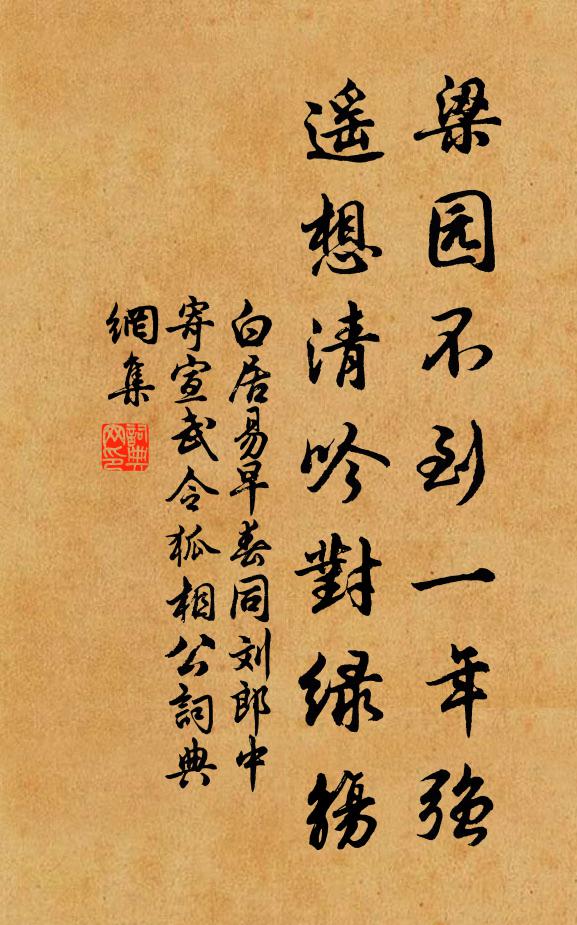 梁园不到一年强
遥想清吟對緑觴
白居易早春同刘郎中
寄宣武令狐相公詞典
網集
詞典
网印